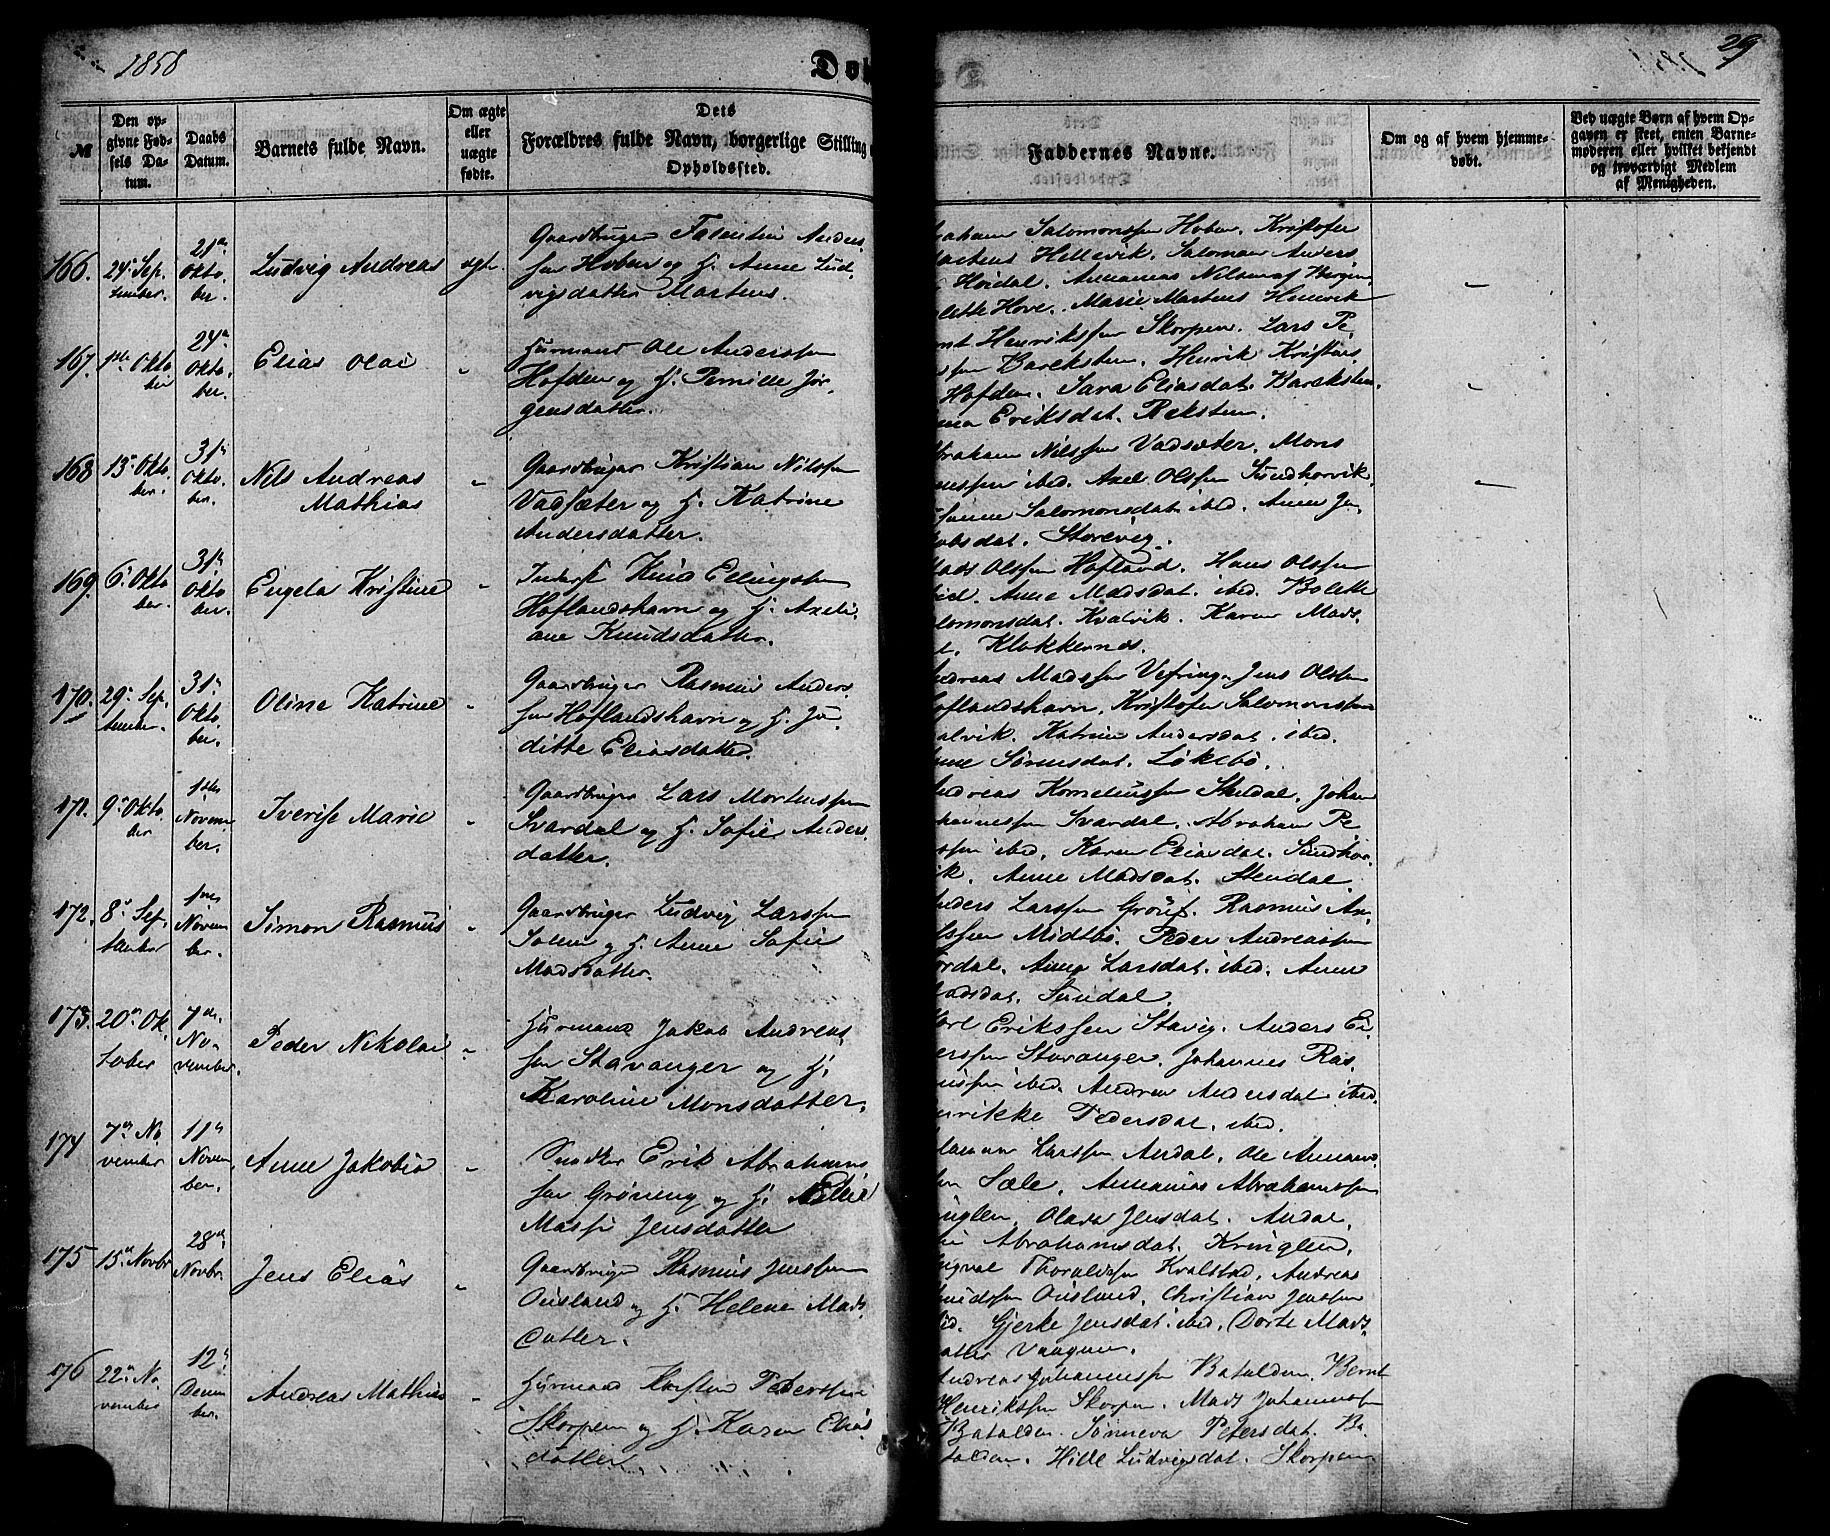 1858
29
Døb
№
Den op-
givne Fød-
sels Da-
tum.
Daabs
Datum.
Barnets fulde Navn.
Om ægte
eller
uægte
fødte.
Dets
Forældres fulde Navn, borgerlige Stilling
Opholdssted.
Faddernes Navne.
Om og af hvem hjemme-
døbt.
Ved uægte Børn af hvem Op-
gaven er skeet, enten Barne-
moderen eller hvilket bekjendt
og troværdigt Medlem
af Menigheden.
166.
24de Sep
tember.
21de
Okto
ber.
Ludvig Andreas
ægte
Gaardbruger Falentin Anders
sen Hoven og H. Anne Lud
vigsdatter Martens.
Salomonsen Hoven. Kristofer
Hellevik. Salomon Anders
Høidal. Annanias Nilsen af Bergen
lette Hove. Marie Martens Henrik
167.
1ste Okto
ber
24de
Okto
ber.
Elias Olai
"
Husmand Ole Anderssen
Hofden og H. Pernille Jør
gensdatter.
Henrikssen Skorpen. Lars Pe
ssen Bareksten. Henrik Kristians
Hofden. Sara Eliasdat. Bareksten.
Eriksdat. Reksten.
168
13de Okto
ber.
31te
Okto.
ber.
Nils Andreas
Mathias
"
Gaardbruger Kristian Nilssen
Vadsæter og H. Katrine
Andersdatter.
braham Nilssen Vadsæter. Mons
ssen ibid. Axel Olssen Sundhorvik.
Salomonsdat. ibid. Anne Ja
obsdat. Storevig.
169.
6te Okto
ber.
31te
Okto
ber.
Engela Kristine
"
Inderst Knud Ellingssen
Hoflandshavn og H. Axeli
ane Knudsdatter.
Mads Olssen Hofland. Hans Olssen
ibid. Anne Madsdat. ibid. Bolette
lomonsdat. Kvalvik. Karen Mads
t. Klokkernes.
170.
29de Sep
tember.
31te
Okto
ber.
Oline Katrine
"
Gaardbruger Rasmus Anders
sen Hoflandshavn og H. Ju
ditte Eliasdatter.
ndreas Madssen Vefring. Jens Olssen
oflandshavn. Kristofer Salomonssen
alvik. Katrine Andersdat. ibid.
Sørensdat. Løkebø.
171.
9de Okto
ber
1ste
Novem
ber.
Iverise Marie
"
Gaardbruger Lars Mortenssen
Svardal og H. Sofie Anders
datter.
ndreas Korneliussen Stendal. Johan
hannessen Svardal. Abraham Pe
ssen ibid. Karen Eliasdat. Sundhor
ik. Anne Madsdat. Stendal.
172.
8de Sep
tember
1ste
Novem
ber.
Simon Rasmus
"
Gaardbruger Ludvig Larssen
Solem og H. Anne Sofie
Madsdatter.
nders Larssen Grøuf. Rasmus An
ssen Midtbø. Peder Andreassen
ordal. Anna Larsdat. ibid. Anne
Madsdat. Sundal.
173.
20de Ok
tober
7de
No
vember.
Peder Nikolai
"
Husmand Jakob Andreas
sen Stavanger og H.
Karoline Monsdatter.
Karl Erikssen Stavig. Anders Ei
erssen Stavanger. Johannes Ras
mussen ibid. Andrea Andersdat ibid.
nrikke Pedersdat. ibid.
174
7de No
vember
11te
Novem
ber.
Anne Jakobia
"
Snedker Erik Abrahams
sen Grøning og H. Elen
Massi Jensdatter
Larssen Andal. Ole Annand
sen Sæle. Annanias Abrahamssen
inglen. Olava Jensdat. Andal.
Abrahamsdat. Kringlen.
175
15de Novbr
28de
Novbr.
Jens Elias
"
Gaardbruger Rasmus Jenssen
Ousland og H. Helene Mads
datter.
ngval Thoraldsen Kvalstad. Andreas
nudssen Ousland. Christian Jenssen
ibid. Gjerke Jensdat. ibid. Dorte Mads
atter Vaagene.
176
22de No
vember
12te
Decem
ber.
Andreas Mathias
"
Husmand Karsten Pederssen
Skorpen og H. Karen Elias
datter
ndreas Johannessen Batalden. Bernt
Henrikssen Skorpen. Mads Johannessen
Batalden. Sønneva Petersdat. Ba
talden. Hille Ludvigsdat. Skorpen